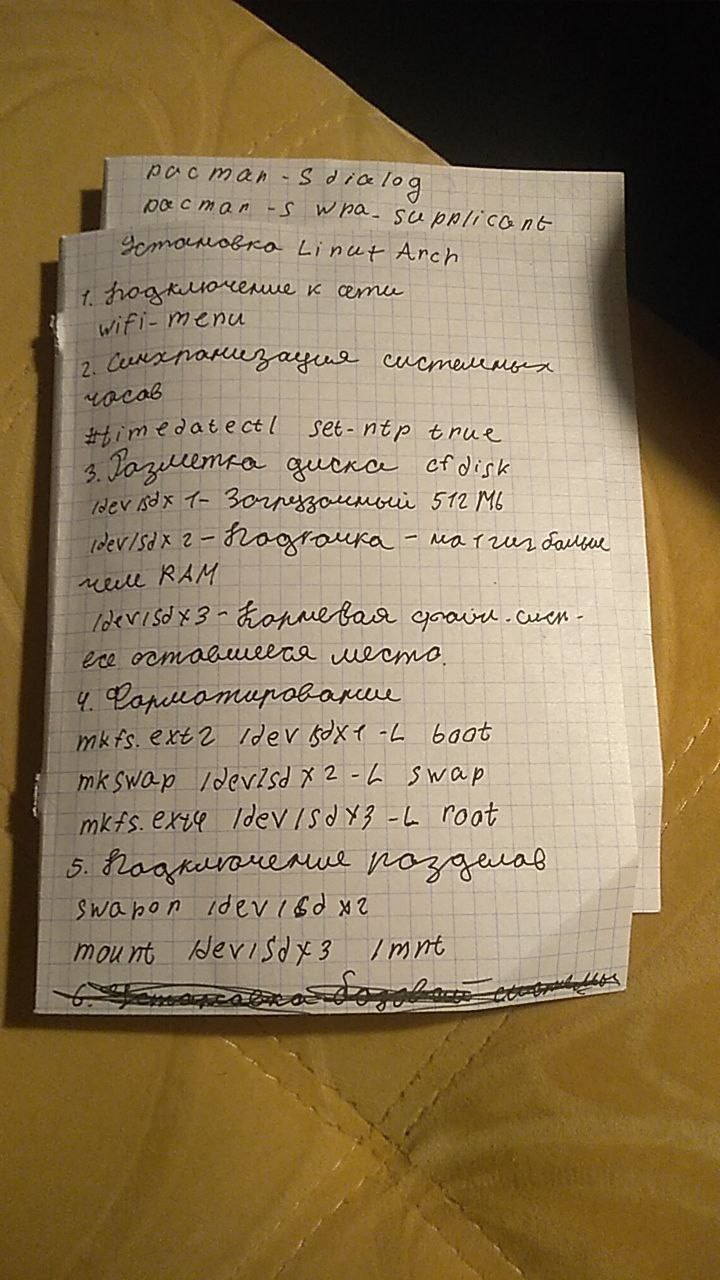 pacman -S dialog
pacman -S wpa_supplicant
Установка Linux Arch
1. Подключение к сети
wifi-menu
2. Синхранизация системных
часов
#timedatectl set-ntp true
3. Разметка диска cfdisk
/dev/sdx 1 - Загрузочный 512 Мб
/dev/sdx 2 - Подкачка - на 1 гиг больше
чем RAM
/dev/sdx3 - Корневая файл. сист -
все оставшееся место.
4. Форматирование
mkfs.ext2 /dev/sdx1 -L boot
mkswap /dev/sdx2 -L swap
mkfs.ext4 /dev/sdx3 -L root
5. Подключение разделов
swapon /dev/sdx2
mount /dev/sdx3 /mnt
6. Установка базовой системы